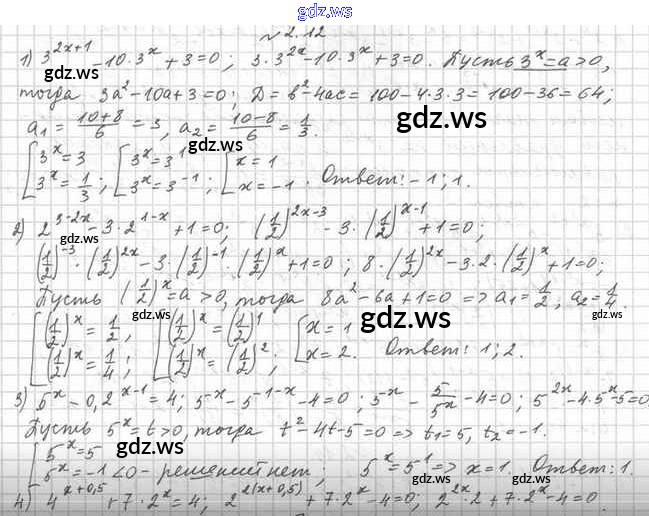 gdz.top
№2.12
1) 3^{2x+1} - 10·3^x + 3 = 0; 3·3^{2x} - 10·3^x + 3 = 0. Пусть 3^x = a > 0,
тогда 3a² - 10a + 3 = 0; D = b² - 4ac = 100 - 4·3·3 = 100 - 36 = 64;
gdz.top
a₁ = (10+8)/6 = 3, a₂ = (10-8)/6 = 1/3.
gdz.top
[3^x = 3 [3^x = 3^1 [x = 1
[3^x = 1/3; [3^x = 3^{-1}; [x = -1. Ответ: -1; 1.
gdz.top
2) 2^{3-2x} - 3·2^{1-x} + 1 = 0; (1/2)^{2x-3} - 3·(1/2)^{x-1} + 1 = 0;
gdz.top
(1/2)^{-3}·(1/2)^{2x} - 3·(1/2)^{-1}·(1/2)^x + 1 = 0; 8·(1/2)^{2x} - 3·2·(1/2)^x + 1 = 0;
gdz.top
Пусть (1/2)^x = a > 0, тогда 8a² - 6a + 1 = 0 => a₁ = 1/2, a₂ = 1/4.
gdz.top
gdz.top
[(1/2)^x = 1/2, [(1/2)^x = (1/2)^1 [x = 1
[(1/2)^x = 1/4; [(1/2)^x = (1/2)^2; [x = 2. Ответ: 1; 2.
3) 5^x - 0,2^{x-1} = 4; 5^x - 5^{1-x} - 4 = 0; 5^x - 5/5^x - 4 = 0; 5^{2x} - 4·5^x - 5 = 0.
gdz.top
Пусть 5^x = t > 0, тогда t² - 4t - 5 = 0 => t₁ = 5, t₂ = -1.
gdz.top
[5^x = 5
[5^x = -1 < 0 - решений нет; 5^x = 5^1 => x = 1. Ответ: 1.
gdz.top
4) 4^{x+0,5} + 7·2^x = 4; 2^{2(x+0,5)} + 7·2^x - 4 = 0; 2^{2x}·2 + 7·2^x - 4 = 0.
gdz.top